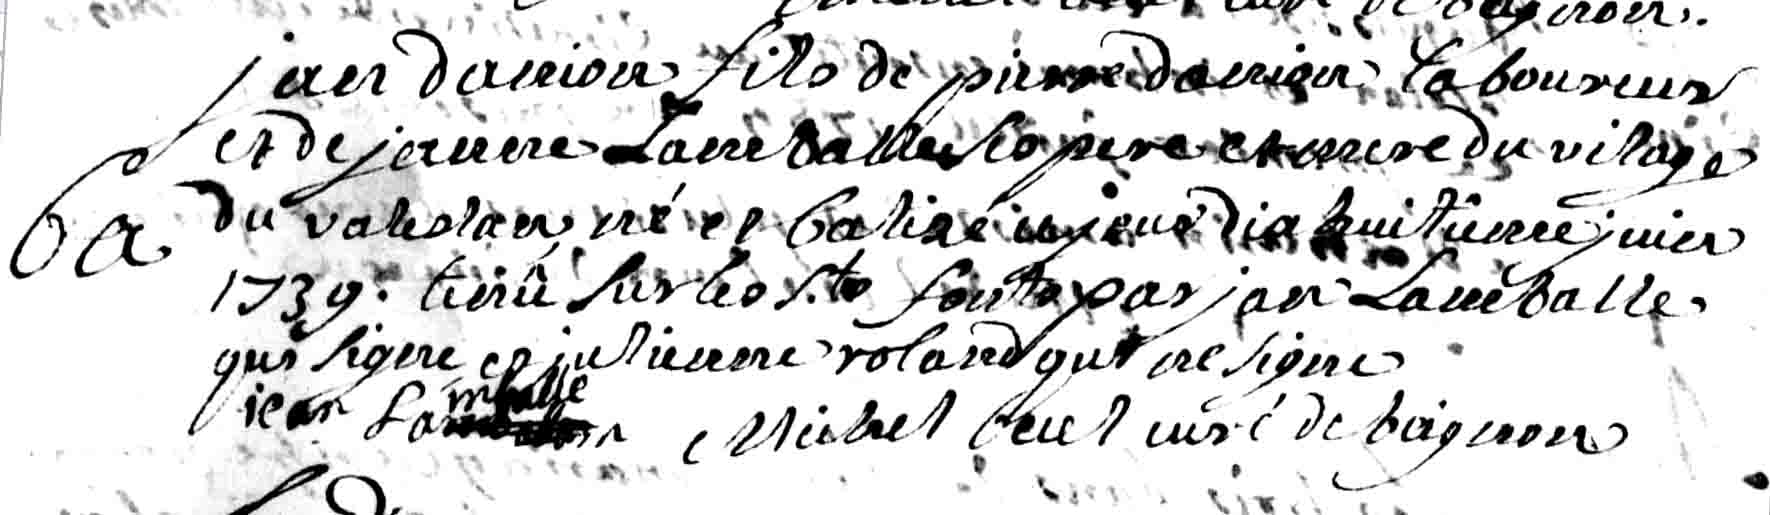 jan danion fils de pierre danion laboureur
et de janne Lamballe ses pere et mere du vilage
ba
du né et batizé ce jour dix huitieme juin
1739. tenu sur les s.ts fonts par jan Lamballe
qui signe et julienne roland qui ne signe
jean Lamballe Michel curé de baignon